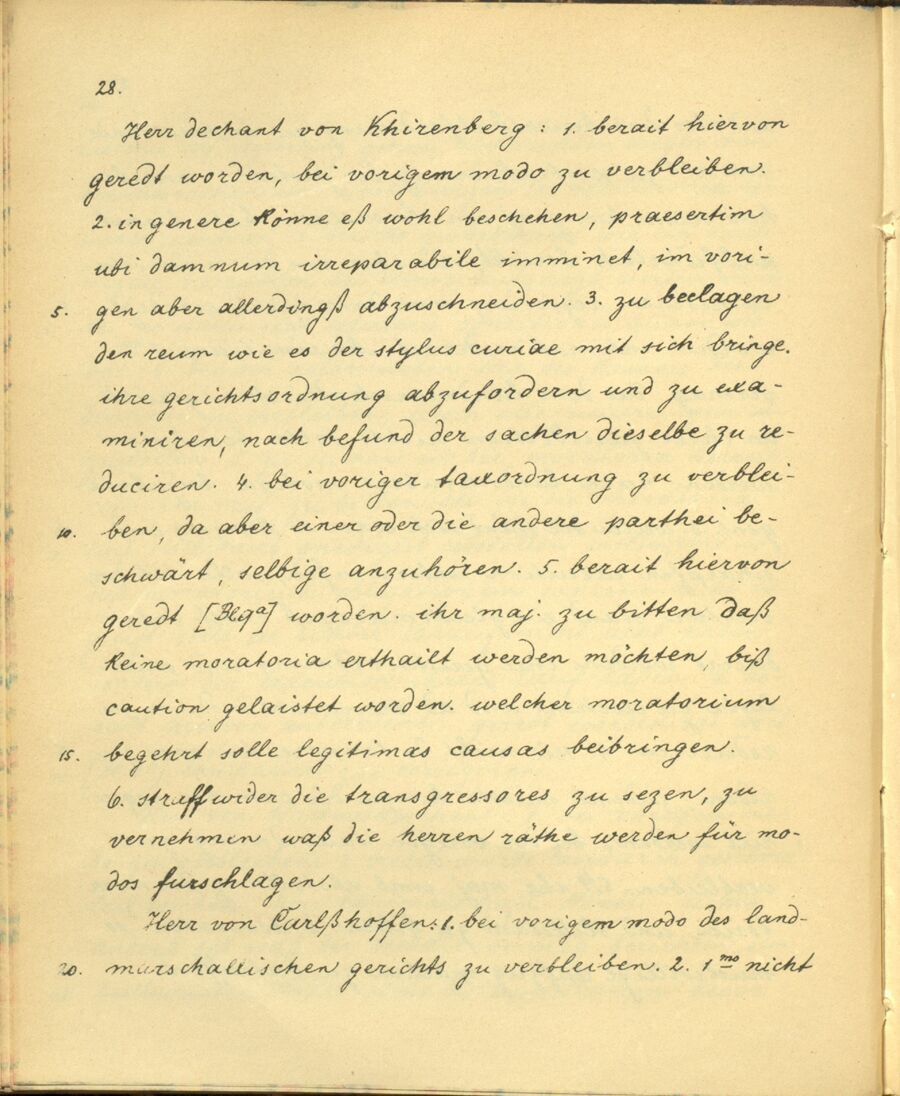 28.
Herr dechant von Khirenberg : 1. berait hiervon
geredt worden, bei vorigem modo zu verbleiben.
2. in genere könne eß wohl beschehen, praesertim
ubi damnum irreparabile imminet, im vori-
5. gen aber allerdingß abzuschneiden. 3. zu beclagen
den reum wie es der stylus curiae mit sich bringe.
ihre gerichtsordnung abzufordern und zu exa-
miniren, nach befund der sachen dieselbe zu re-
duciren. 4. bei voriger taxordnung zu verblei-
10. ben, da aber einer oder die andere parthei be-
schwärt, selbige anzuhören. 5. berait hiervon
geredt [Blga] worden. ihr maj. zu bitten daß
keine moratoria erthailt werden möchten, biß
caution gelaistet worden. welcher moratorium
15. begehrt solle legitimas causas beibringen.
6. straff wider die transgressores zu sezen, zu
vernehmen waß die herren räthe werden für mo-
dos furschlagen.
Herr von Carlßhoffen: 1. bei vorigem modo des land-
20. marschallischen gerichts zu verbleiben. 2. 1mo nicht